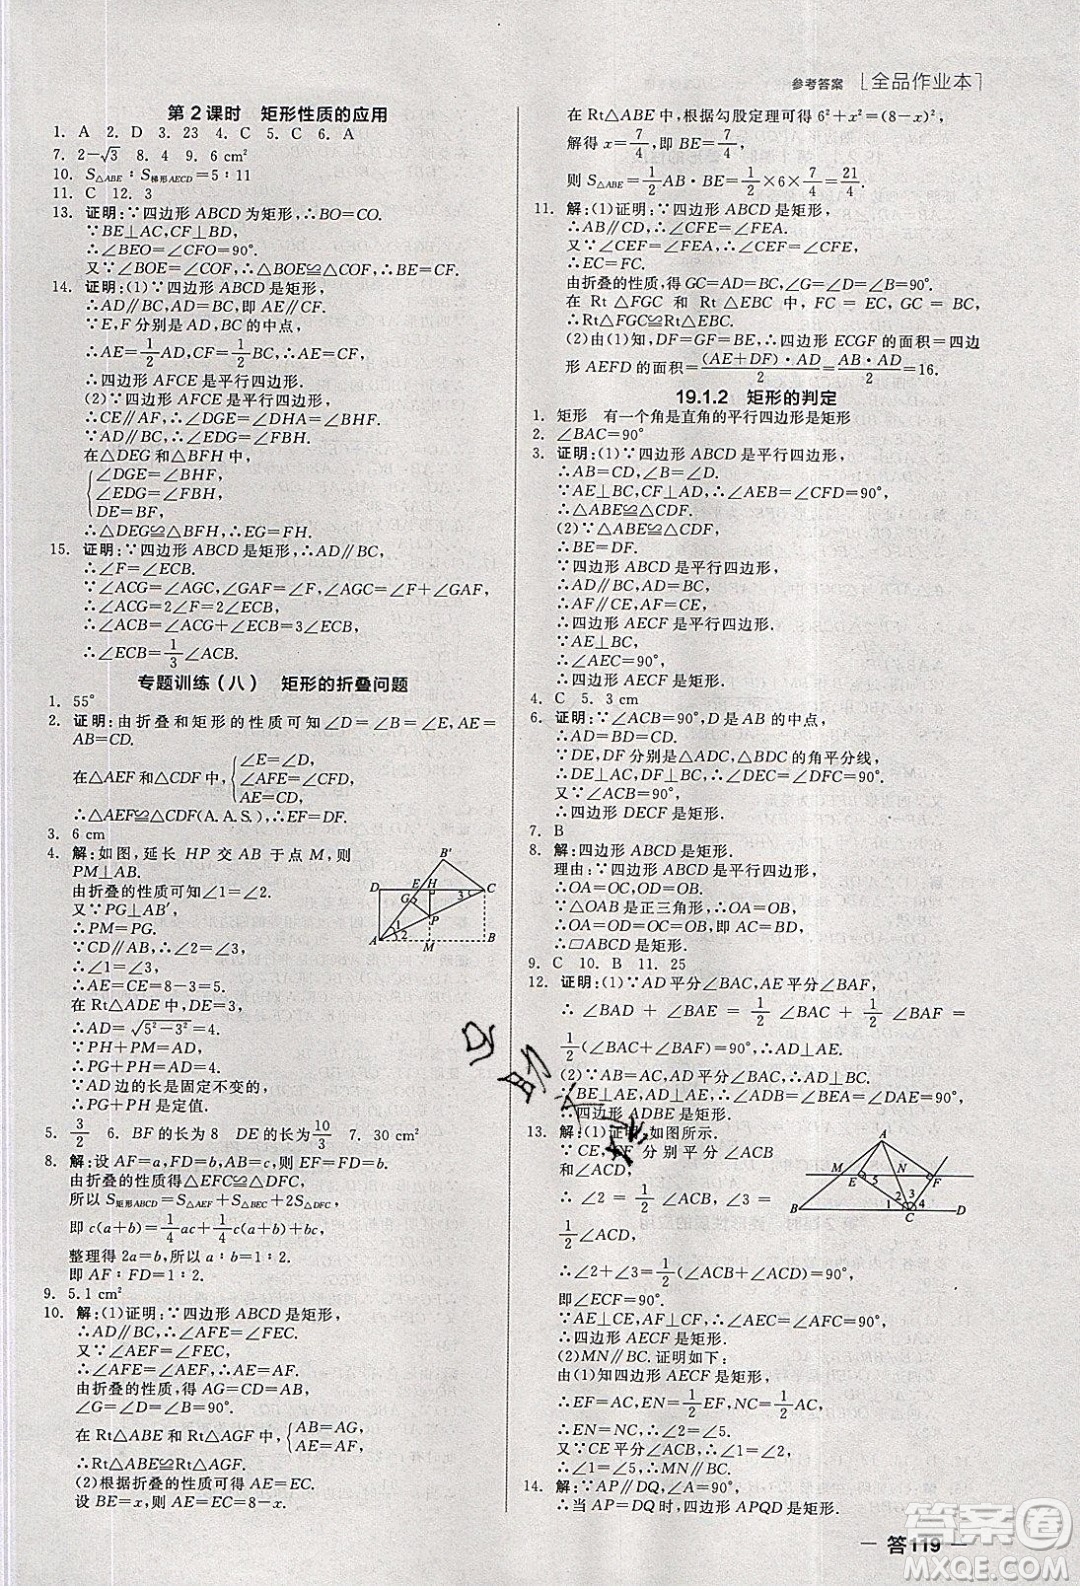 参考答案 [全品作业本]
第2课时 矩形性质的应用
1. A 2. D 3. 23 4. C 5. C 6. C
7. 2-√3 8. 4 9. 6 cm²
10. S△ABE∶S梯形AECD=5∶11
11. C 12. 3
13. 证明:∵四边形ABCD为矩形,∴BO=CO.
∵BE⊥AC,CF⊥BD,
∴∠BEO=∠CFO=90°.
又∵∠BOE=∠COF,∴△BOE≌△COF,∴BE=CF.
14. 证明:(1)∵四边形ABCD是矩形,
∴AD∥BC,AD=BC,即AE∥CF.
∵E,F分别是AD,BC的中点,
∴AE=1/2AD,CF=1/2BC,∴AE=CF,
∴四边形AFCE是平行四边形.
(2)∵四边形AFCE是平行四边形,
∴CE∥AF,∴∠DGE=∠DHA=∠BHF.
∵AD∥BC,∴∠EDG=∠FBH.
在△DEG和△BFH中,
{∠DGE=∠BHF,
∠EDG=∠FBH,
DE=BF,
∴△DEG≌△BFH,∴EG=FH.
15. 证明:∵四边形ABCD是矩形,∴AD∥BC,
∴∠F=∠ECB.
∵∠ACG=∠AGC,∠GAF=∠F,∴∠AGC=∠GAF+∠F=2∠F,
∴∠ACG=2∠F=2∠ECB,
∴∠ACB=∠ACG+∠ECB=3∠ECB,
∴∠ECB=1/3∠ACB.
专题训练(八) 矩形的折叠问题
1. 55°
2. 证明:由折叠和矩形的性质可知∠D=∠E,AE=
AB=CD.
在△AEF和△CDF中,{∠E=∠D,
∠AFE=∠CFD,
AE=CD,
∴△AEF≌△CDF(A.A.S.),∴EF=DF.
3. 6 cm
4. 解:如图,延长HP交AB于点M,则
PM⊥AB.
由折叠的性质可知∠1=∠2.
又∵PG⊥AB′,
∴PM=PG.
∵CD∥AB,∴∠2=∠3,
∴∠1=∠3,
∴AE=CE=8-3=5.
在Rt△ADE中,DE=3,
∴AD=√5²-3²=4.
∵PH+PM=AD,
∴PG+PH=AD=4.
∵AD边的长是固定不变的,
∴PG+PH是定值.
5. 3/2 6. BF的长为8 DE的长为10/3 7. 30 cm²
8. 解:设AF=a,FD=b,AB=c,则EF=FD=b.
由折叠的性质可得△EFC≌△DFC,
所以S矩形ABCD=S△AEF+S△BEC+2S△DFC,
即c(a+b)=1/4ac+1/4c(a+b)+bc,
整理得2a=b,所以a∶b=1∶2.
即AF∶FD=1∶2.
9. 5.1 cm²
10. 解:(1)证明:∵四边形ABCD是矩形,
∴AD∥BC,∴∠AFE=∠FEC.
又∵∠AEF=∠FEC,
∴∠AFE=∠AEF,∴AE=AF.
由折叠的性质,得AG=CD=AB,
∠G=∠D=90°,∴∠G=∠B.
在Rt△ABE和Rt△AGF中,{AB=AG,
AE=AF,
∴Rt△ABE≌Rt△AGF.
(2)根据折叠的性质可得AE=EC.
设BE=x,则AE=EC=8-x.
在Rt△ABE中,根据勾股定理可得6²+x²=(8-x)²,
解得x=7/4,即BE=7/4,
则S△ABE=1/2AB·BE=1/2×6×7/4=21/4.
11. 解:(1)证明:∵四边形ABCD是矩形,
∴AB∥CD,∴∠CFE=∠FEA.
又∵∠CEF=∠FEA,∴∠CEF=∠CFE,
∴EC=FC.
由折叠的性质,得GC=BC,∠G=∠B=90°.
在Rt△FGC和Rt△EBC中,FC=EC,GC=BC,
∴Rt△FGC≌Rt△EBC.
(2)由(1)知,DF=GF=BE,四边形ECGF的面积=四边
形AEFD的面积=(AE+DF)·AD/2=AB·AD/2=16.
19.1.2 矩形的判定
1. 矩形 有一个角是直角的平行四边形是矩形
2. ∠BAC=90°
3. 证明:(1)∵四边形ABCD是平行四边形,
∴AB=CD,∠B=∠D.
∵AE⊥BC,CF⊥AD,∴∠AEB=∠CFD=90°,
∴△ABE≌△CDF.
(2)∵△ABE≌△CDF,
∴BE=DF.
∵四边形ABCD是平行四边形,
∴AD∥BC,AD=BC,
∴AF∥CE,AF=CE,
∴四边形AECF是平行四边形.
∵AE⊥BC,
∴∠AEC=90°,
∴四边形AECF是矩形.
4. C 5. 3 cm
6. 证明:∵∠ACB=90°,D是AB的中点,
∴AD=BD=CD.
∵DE,DF分别是∠ADC,∠BDC的角平分线,
∴DE⊥AC,DF⊥BC,∴∠DEC=∠DFC=90°.
又∵∠ACB=90°,
∴四边形DECF是矩形.
7. B
8. 解:四边形ABCD是矩形.
理由:∵四边形ABCD是平行四边形,
∴OA=OC,OD=OB.
∵△OAB是正三角形,∴OA=OB,
∴OA=OC=OD=OB,即AC=BD,
∴▱ABCD是矩形.
9. C 10. B 11. 25
12. 证明:(1)∵AD平分∠BAC,AE平分∠BAF,
∴∠BAD+∠BAE=1/2∠BAC+1/2∠BAF=
1/2(∠BAC+∠BAF)=90°,∴AD⊥AE.
(2)∵AB=AC,AD平分∠BAC,∴AD⊥BC.
∵BE⊥AE,AD⊥AE,∴∠ADB=∠BEA=∠DAE=90°,
∴四边形ADBE是矩形.
13. 解:(1)证明:如图所示.
∵CE,CF分别平分∠ACB
和∠ACD,
∴∠2=1/2∠ACB,∠3=
1/2∠ACD,
∴∠2+∠3=1/2(∠ACB+∠ACD)=90°,
即∠ECF=90°.
∵AE⊥CE,AF⊥CF,∴∠AEC=∠AFC=90°,
∴四边形AECF是矩形.
(2)MN∥BC.证明如下:
由(1)知四边形AECF是矩形,
∴EF=AC,EN=1/2EF,NC=1/2AC,
∴EN=NC,∴∠2=∠5.
又∵CE平分∠ACB,∴∠1=∠2,
∴∠1=∠5,∴MN∥BC.
14. 解:∵AP∥DQ,∠A=90°,
∴当AP=DQ时,四边形APQD是矩形.
D E H C B′ G 5 3 P 1 2 A M B
A M E N F 5 1 2 3 4 B C D
答案圈
MXQE.COM
— 答119 —